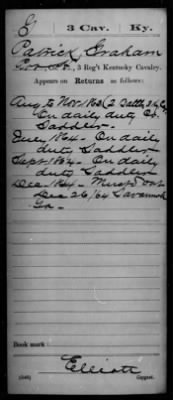 G | 3 Cav. | Ky.
Patrick Graham
Co. , 3 Reg't Kentucky Cavalry.
Appears on Returns as follows:
Aug to Nov 1863 (2 Batt'y 3 Ky Cav
On daily duty Co.
Saddler.
July 1864. On daily
duty Saddler
Sept 1864. On daily
duty Saddler
Dec. 1864. Must'd out
Dec 26/64 Savannah
Ga.
Book mark:
Elliott
(546) Copyist.